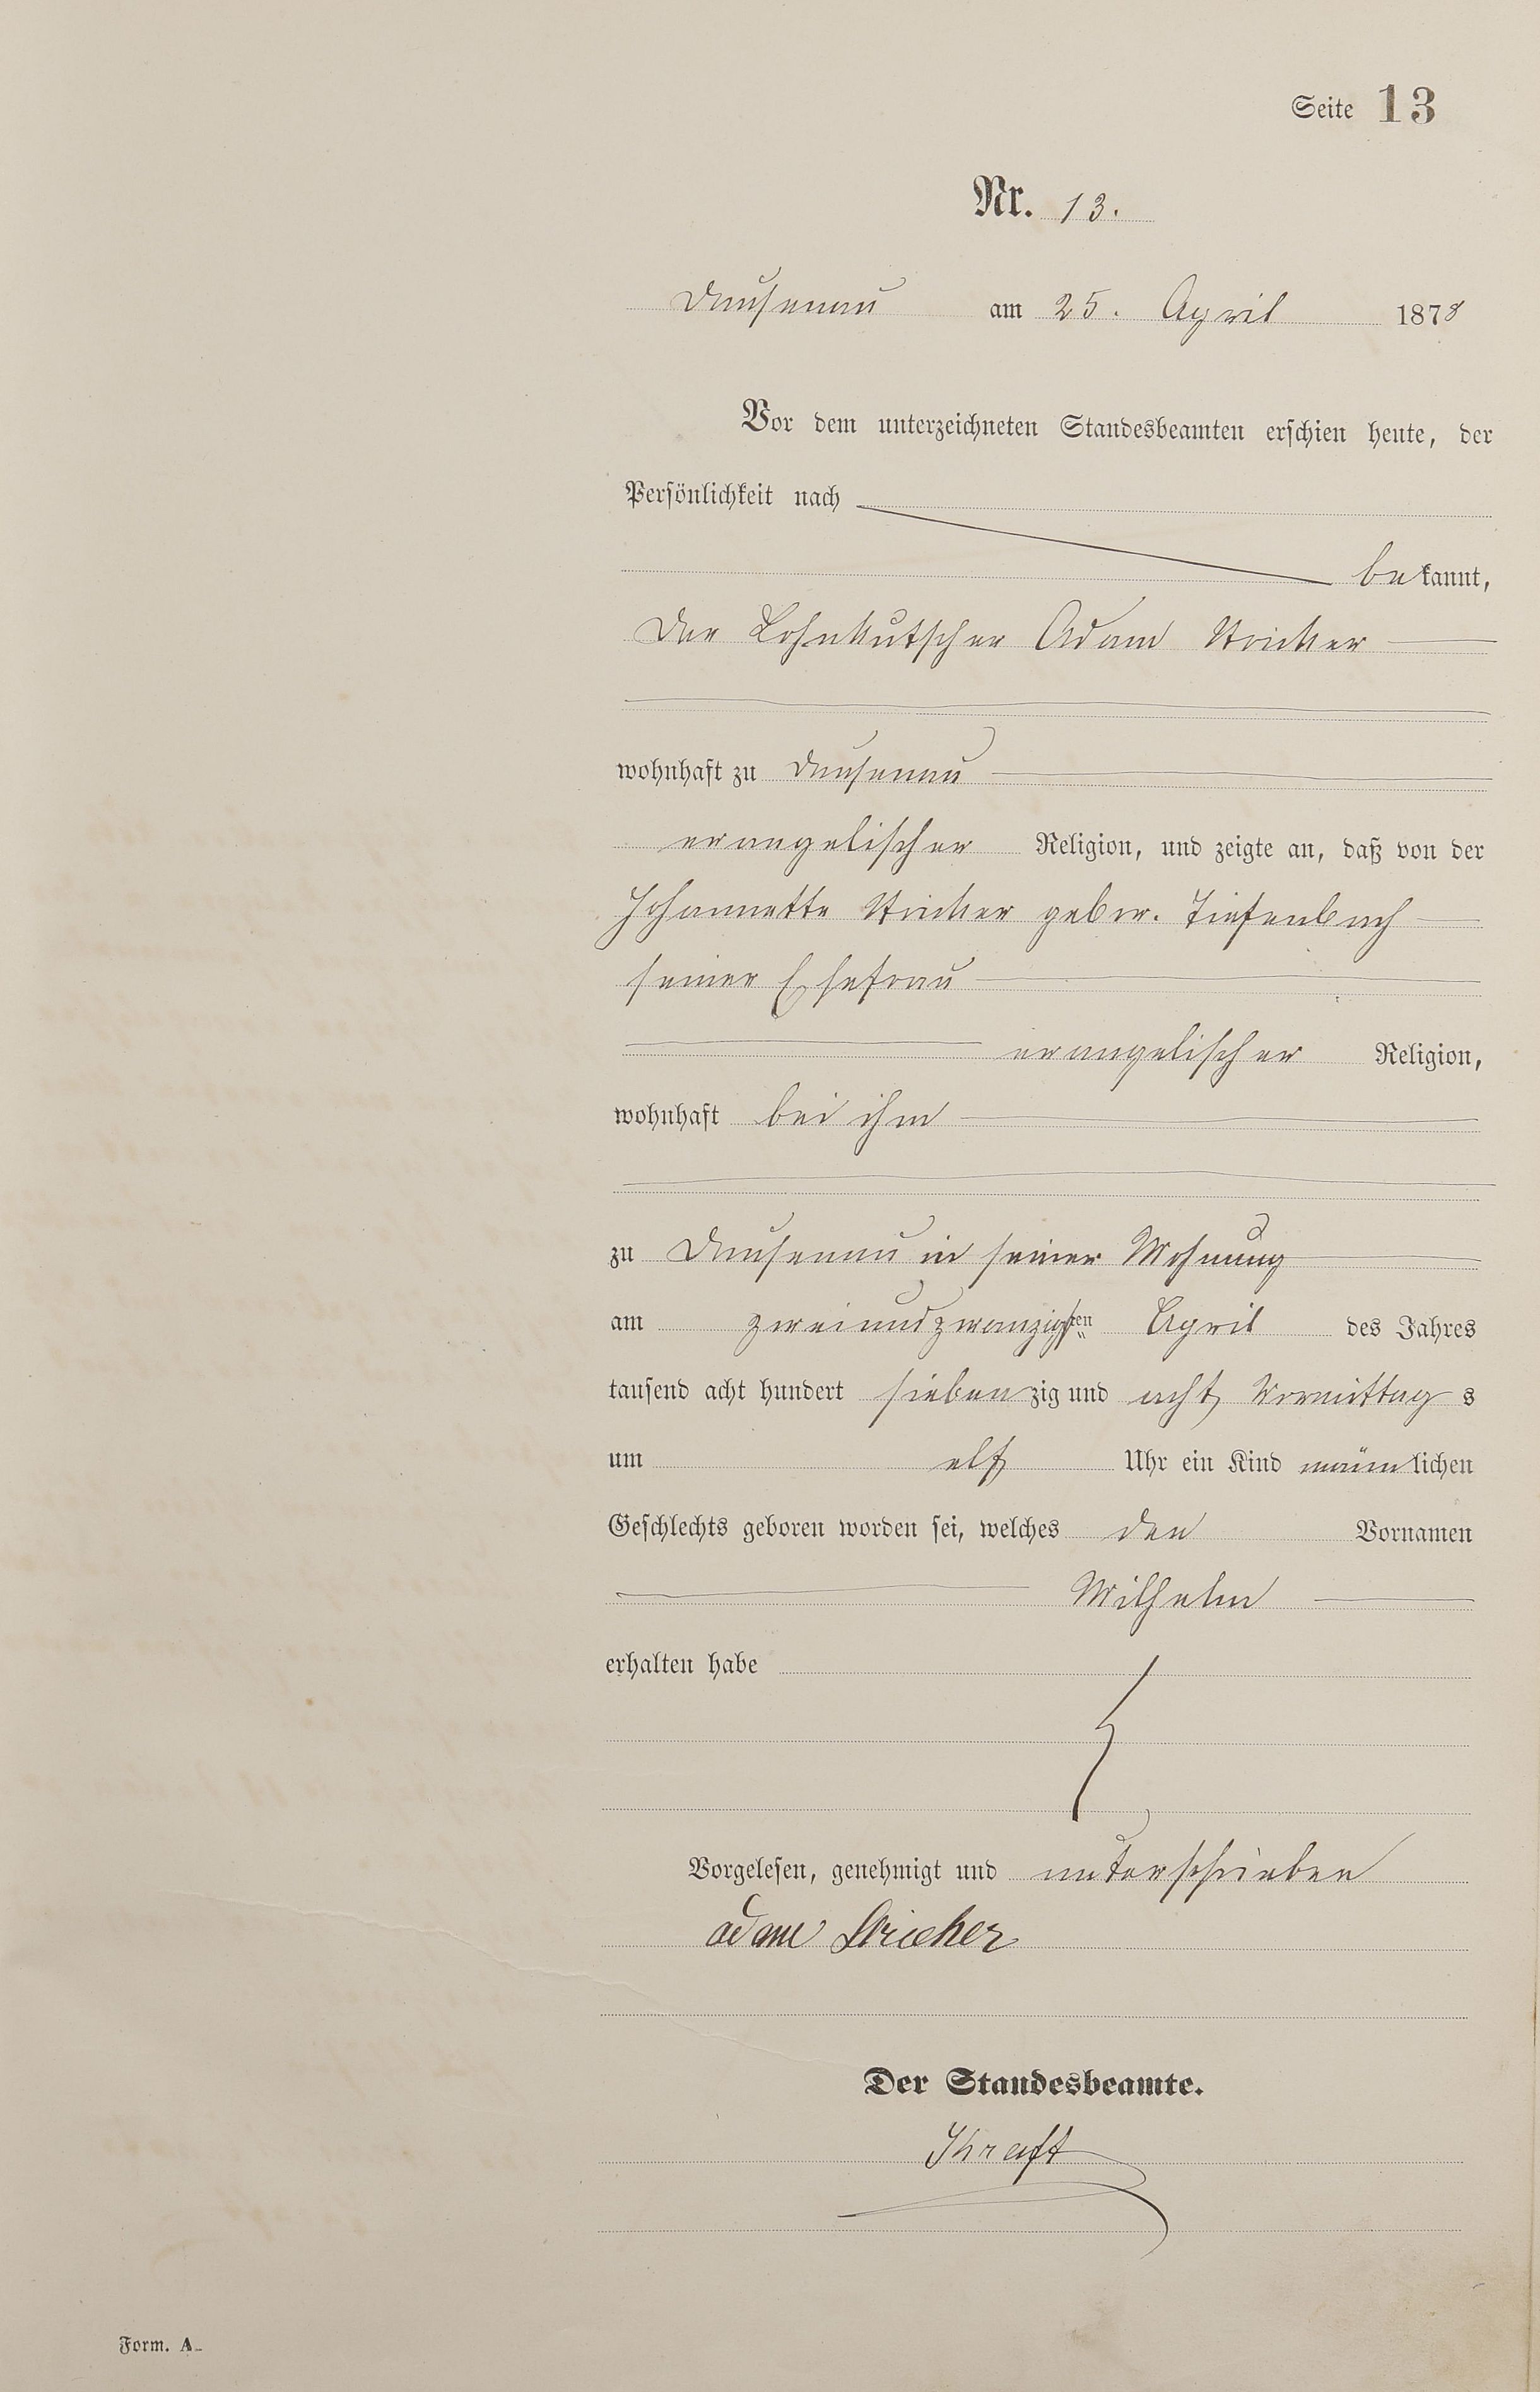 Seite 13
Nr. 13.
Dausenau am 25. April 1878
Vor dem unterzeichneten Standesbeamten erschien heute, der
Persönlichkeit nach
bekannt,
der Lohnkutscher Adam Stricker
wohnhaft zu Dausenau
evangelischer Religion, und zeigte an, daß von der
Johannette Stricker gebor. Tiefenbach
seiner Ehefrau
evangelischer Religion,
wohnhaft bei ihm
zu Dausenau in seiner Wohnung
am zweiundzwanzigsten April des Jahres
tausend acht hundert siebenzig und acht Vormittags
um elf Uhr ein Kind männlichen
Geschlechts geboren worden sei, welches den Vornamen
Wilhelm
erhalten habe
Vorgelesen, genehmigt und unterschrieben
Adam Stricker
Der Standesbeamte.
Kraft
Form. A.